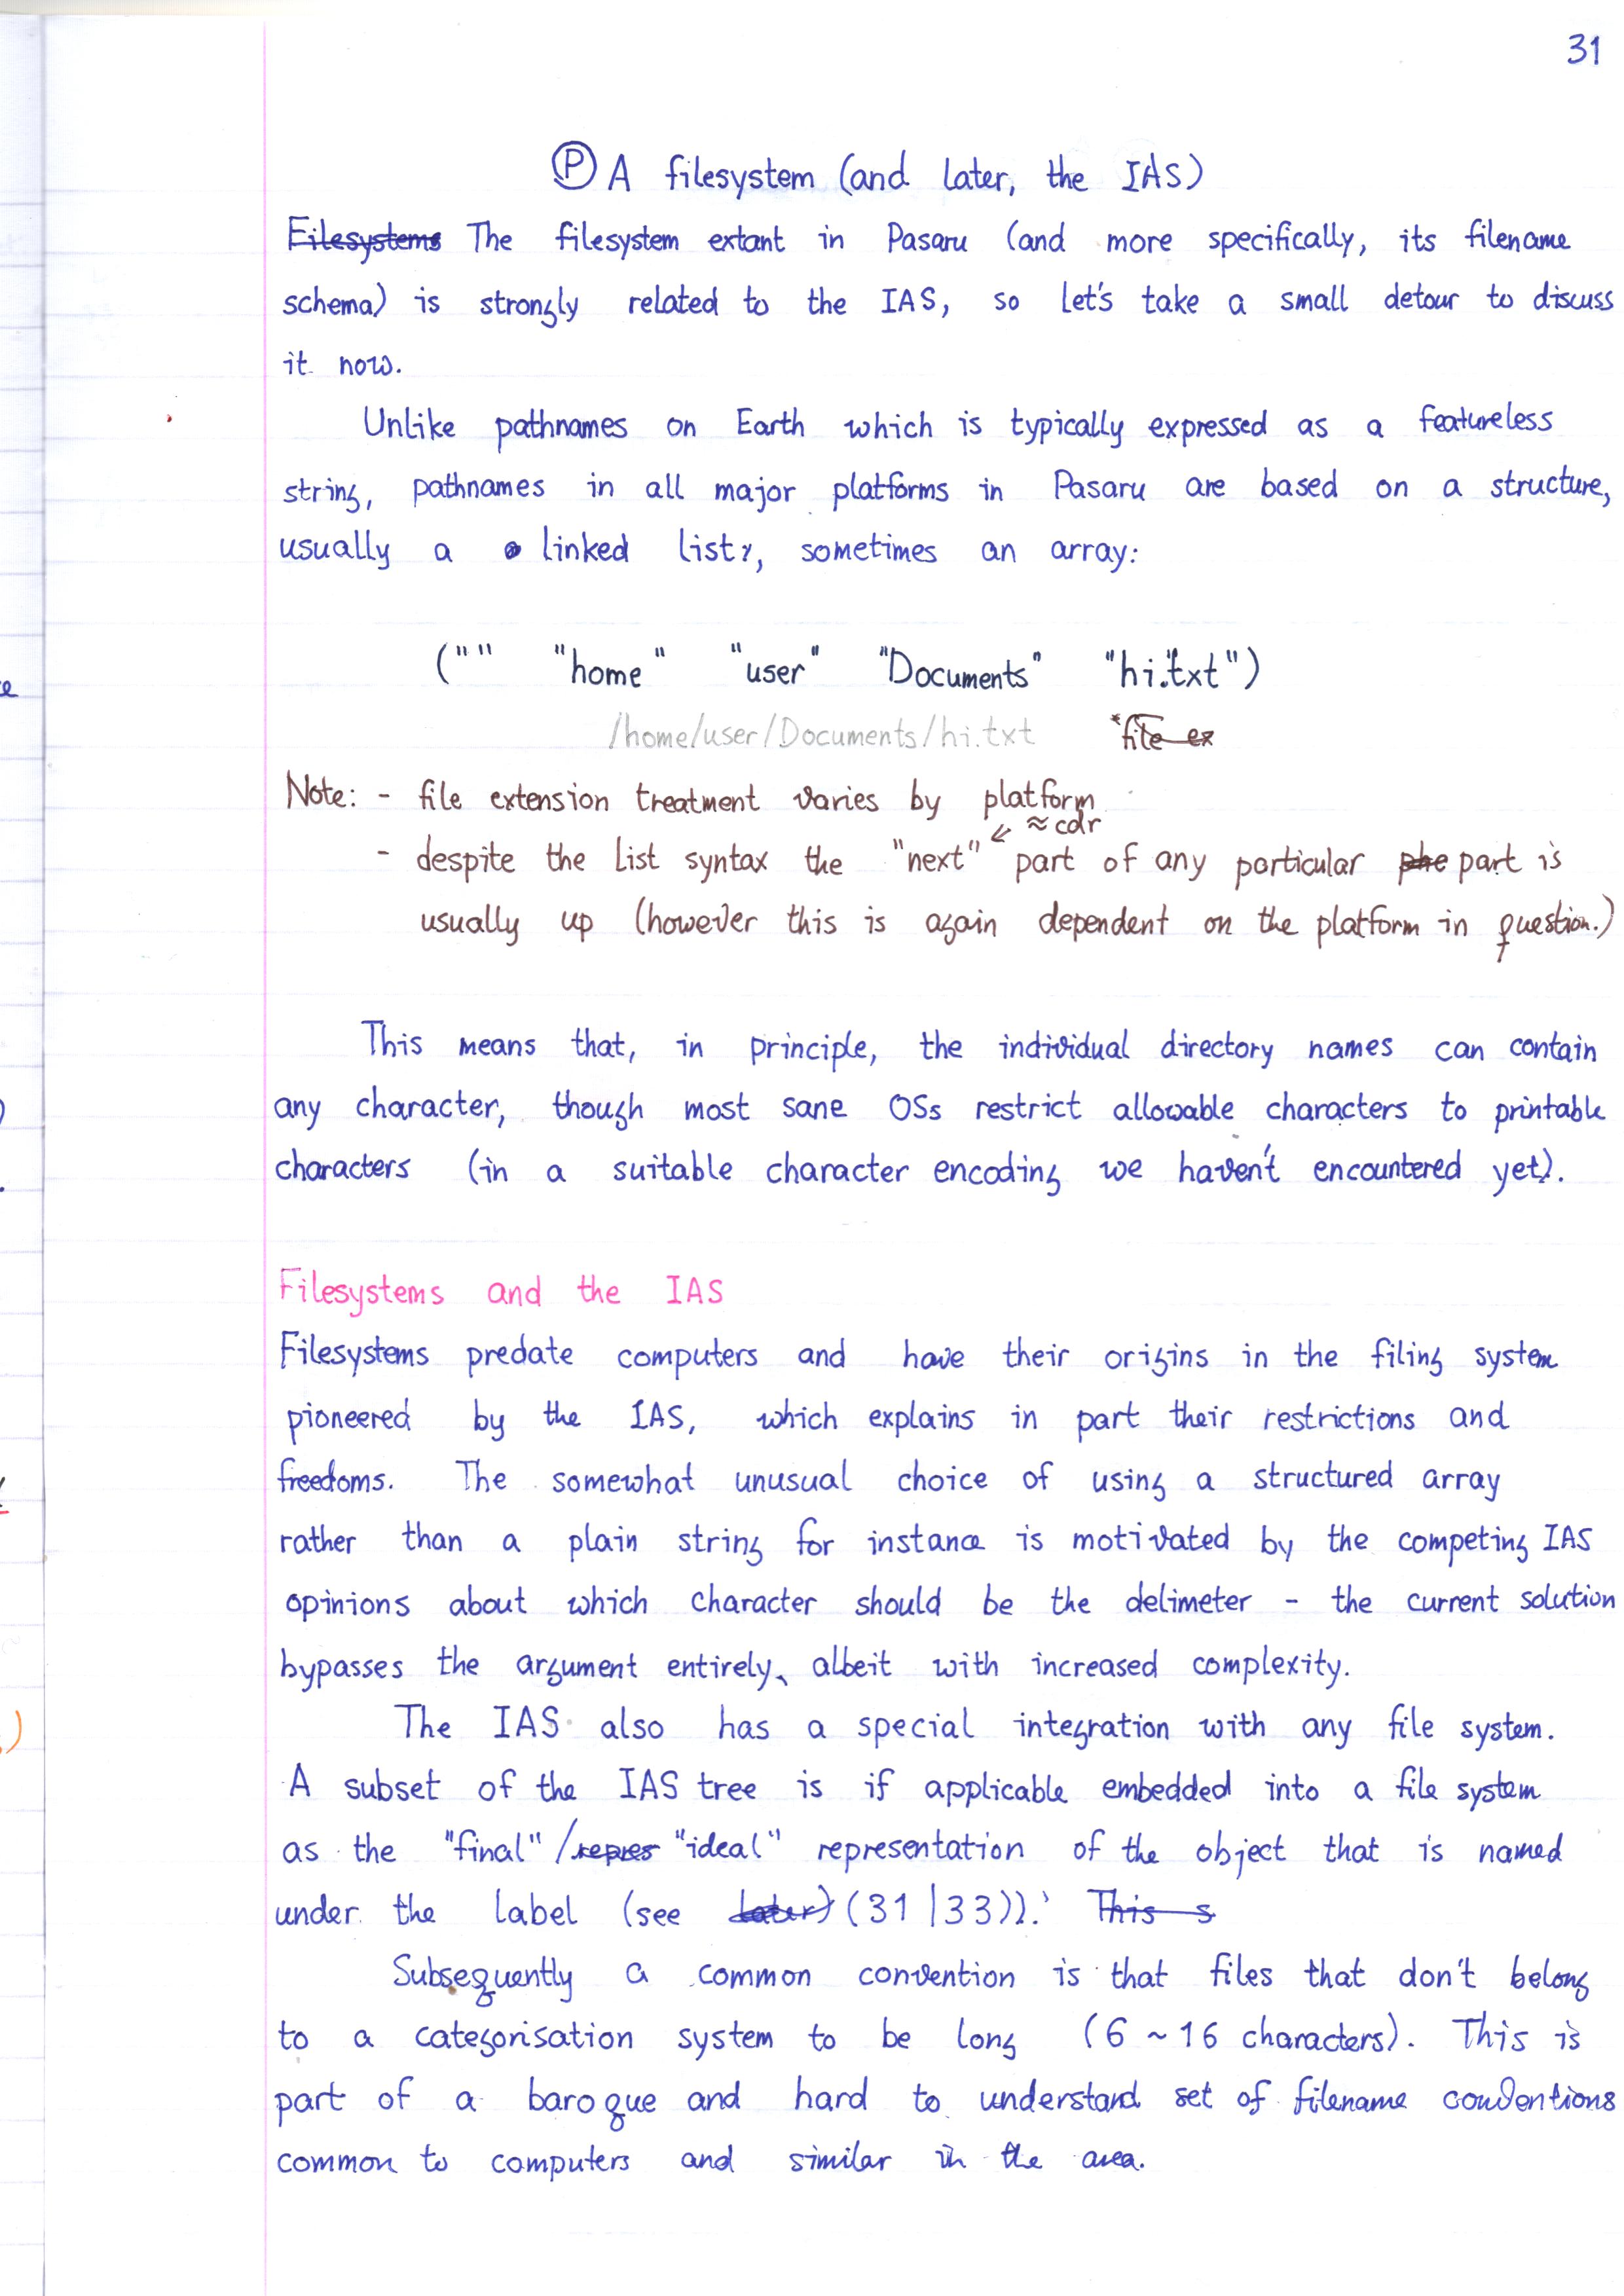 31
Ⓟ A filesystem (and later, the IAS)
Filesystems The filesystem extant in Pasaru (and more specifically, its filename
schema) is strongly related to the IAS, so let's take a small detour to discuss
it now.
Unlike pathnames on Earth which is typically expressed as a featureless
string, pathnames in all major platforms in Pasaru are based on a structure,
usually a linked list, sometimes an array:
("" "home" "user" "Documents" "hi.txt")
/home/user/Documents/hi.txt *file ex
Note: - file extension treatment varies by platform
↙ ≈ cdr
- despite the list syntax the "next" part of any particular part is
usually up (however this is again dependent on the platform in question.)
This means that, in principle, the individual directory names can contain
any character, though most sane OSs restrict allowable characters to printable
characters (in a suitable character encoding we haven't encountered yet).
Filesystems and the IAS
Filesystems predate computers and have their origins in the filing system
pioneered by the IAS, which explains in part their restrictions and
freedoms. The somewhat unusual choice of using a structured array
rather than a plain string for instance is motivated by the competing IAS
opinions about which character should be the delimeter - the current solution
bypasses the argument entirely, albeit with increased complexity.
The IAS also has a special integration with any file system.
A subset of the IAS tree is if applicable embedded into a file system
as the "final" / repres "ideal" representation of the object that is named
under the label (see later) (31|33)). This s
Subsequently a common convention is that files that don't belong
to a categorisation system to be long (6 ~ 16 characters). This is
part of a baroque and hard to understand set of filename conventions
common to computers and similar in the area.